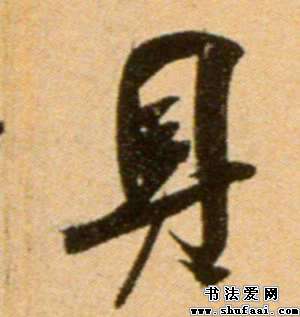 具
书法爱网
www.shufaai.com